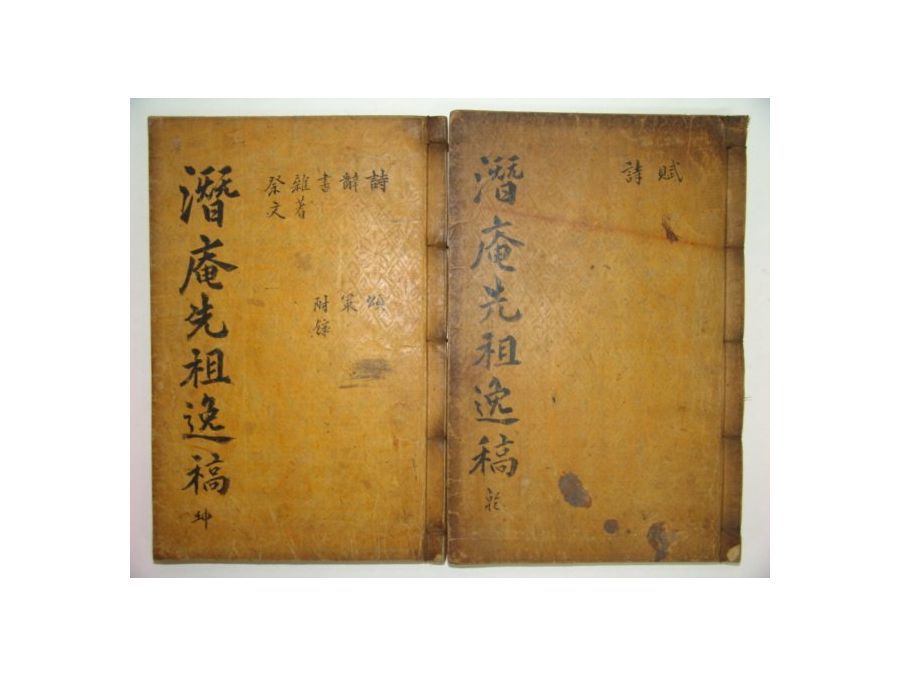 賦
詩
潛庵先祖逸稿 乾
詩 頌
辭 策
書 附錄
雜著
祭文
潛庵先祖逸稿 坤